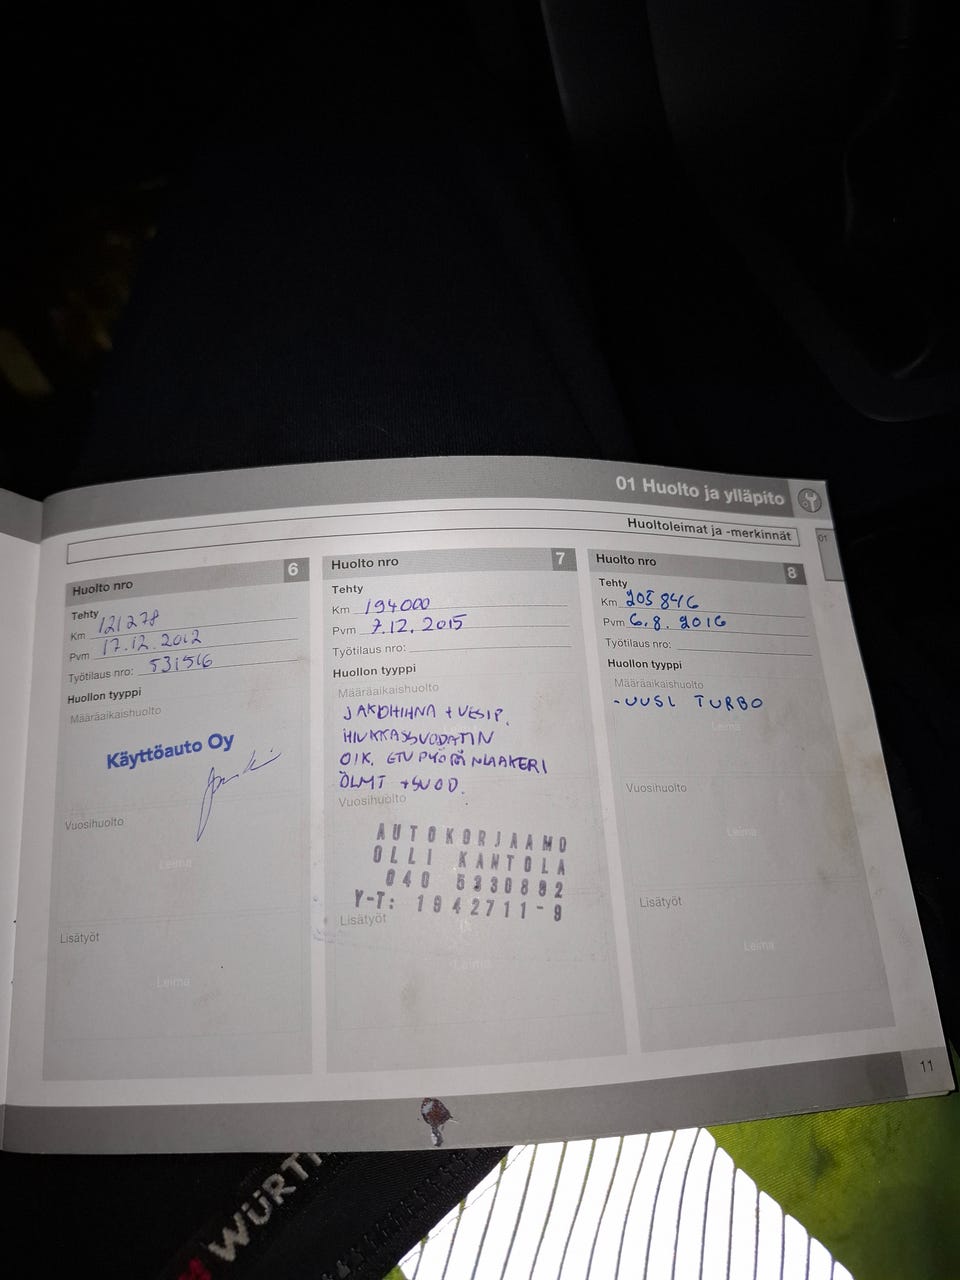 01 Huolto ja ylläpito
Huoltoleimat ja -merkinnät
01
Huolto nro 6
Tehty
Km 121278
Pvm 17.12.2012
Työtilaus nro: 531516
Huollon tyyppi
Määräaikaishuolto
Käyttöauto Oy
Vuosihuolto
Leima
Lisätyöt
Leima
Huolto nro 7
Tehty
Km 194000
Pvm 7.12.2015
Työtilaus nro:
Huollon tyyppi
Määräaikaishuolto
JAKOHIHNA + VESIP.
HIUKKASSUODATIN
OIK. ETUPYÖRÄN LAAKERI
ÖLJYT + SUOD.
Vuosihuolto
AUTOKORJAAMO
OLLI KANTOLA
040 5330892
Y-T: 1942711-9
Lisätyöt
Leima
Huolto nro 8
Tehty
Km 205846
Pvm 6.8.2016
Työtilaus nro:
Huollon tyyppi
Määräaikaishuolto
-UUSI TURBO
Leima
Vuosihuolto
Leima
Lisätyöt
Leima
11
WÜRT